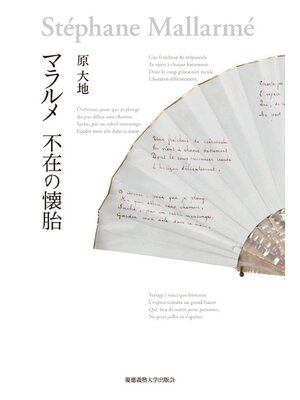 Stéphane Mallarmé
Une fraîcheur de crépuscule
Te vient à chaque battement
Dont le coup prisonnier recule
L'horizon délicatement.
原 大地
マラルメ 不在の懐胎
Ô rêveuse, pour que je plonge
Au pur délice sans chemin,
Sache, par un subtil mensonge,
Garder mon aile dans ta main.
Une fraîcheur de crépuscule
Te vient à chaque battement
Dont le coup prisonnier recule
L'horizon délicatement.
O rêveuse, pour que je plonge
Au pur délice sans chemin,
Sache, par un subtil mensonge,
Garder mon aile dans ta main.
Vertige ! voici que frissonne
L'espace comme un grand baiser
Qui, fou de naître pour personne,
Ne peut jaillir ni s'apaiser.
慶應義塾大学出版会